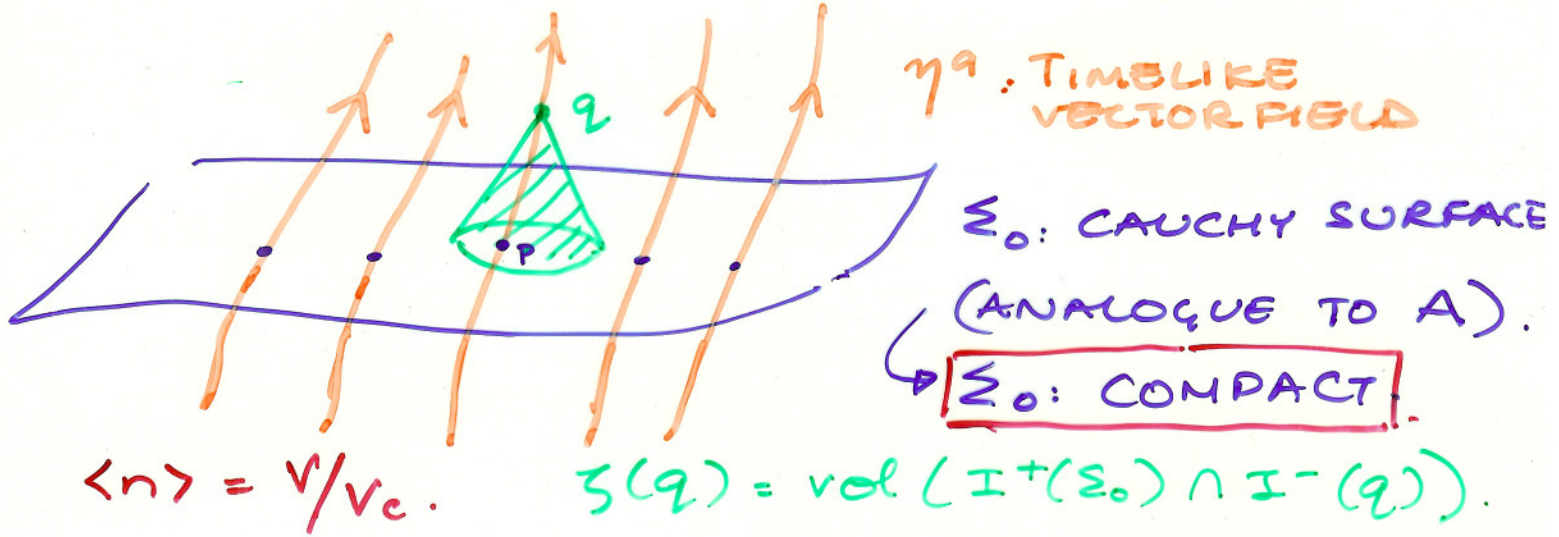 q
ηᵃ: TIMELIKE
VECTOR FIELD
p
Σ₀: CAUCHY SURFACE
(ANALOGUE TO A).
Σ₀: COMPACT.
<n> = V/Vc.
ζ(q) = vol (I⁺(Σ₀) ∩ I⁻(q)).